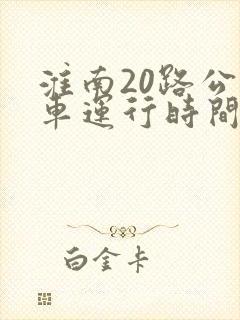 淮南20路公
車運行時間
白金卡